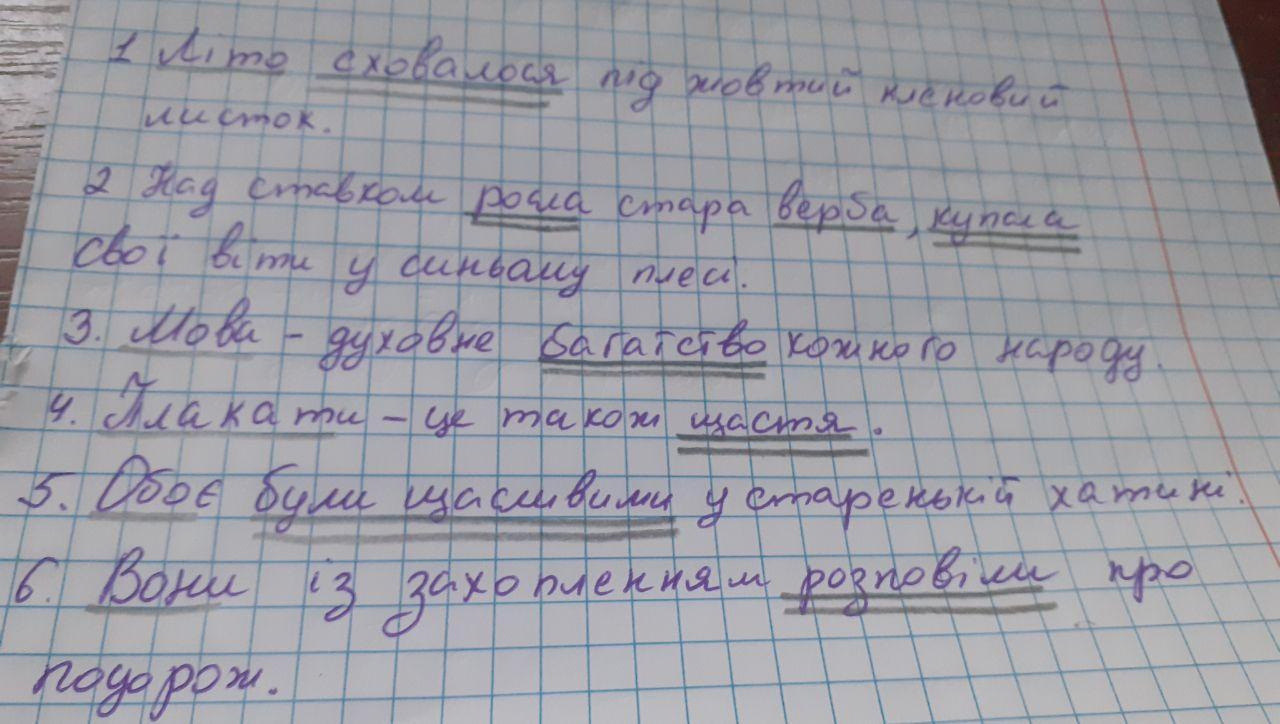 1 Літо сховалося під жовтий кленовий
листок.
2 Над ставком росла стара верба, купала
свої віти у синьому плесі.
3. Мова - духовне багатство кожного народу.
4. Плакати - це також щастя.
5. Обоє були щасливими у старенькій хатині.
6. Вони із захопленням розповіли про
подорож.